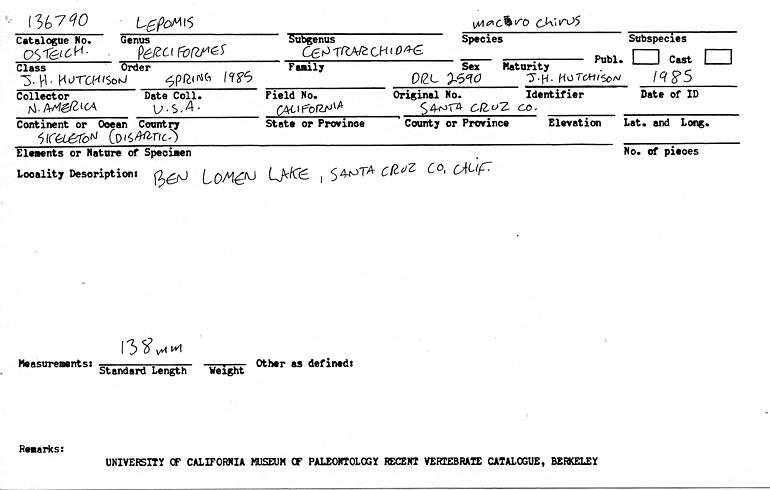 136790 LEPOMIS macrochirus
Catalogue No. Genus Subgenus Species Subspecies
OSTEICH. PERCIFORMES CENTRARCHIDAE Publ. Cast
Class Order Family Sex Maturity
J.H. HUTCHISON SPRING 1985 DRL 2590 J.H. HUTCHISON 1985
Collector Date Coll. Field No. Original No. Identifier Date of ID
N. AMERICA U.S.A. CALIFORNIA SANTA CRUZ CO.
Continent or Ocean Country State or Province County or Province Elevation Lat. and Long.
SKELETON (DISARTIC.)
Elements or Nature of Specimen No. of pieces
Locality Description: BEN LOMEN LAKE, SANTA CRUZ CO, CALIF.
138mm
Measurements: Standard Length Weight Other as defined:
Remarks:
UNIVERSITY OF CALIFORNIA MUSEUM OF PALEONTOLOGY RECENT VERTEBRATE CATALOGUE, BERKELEY